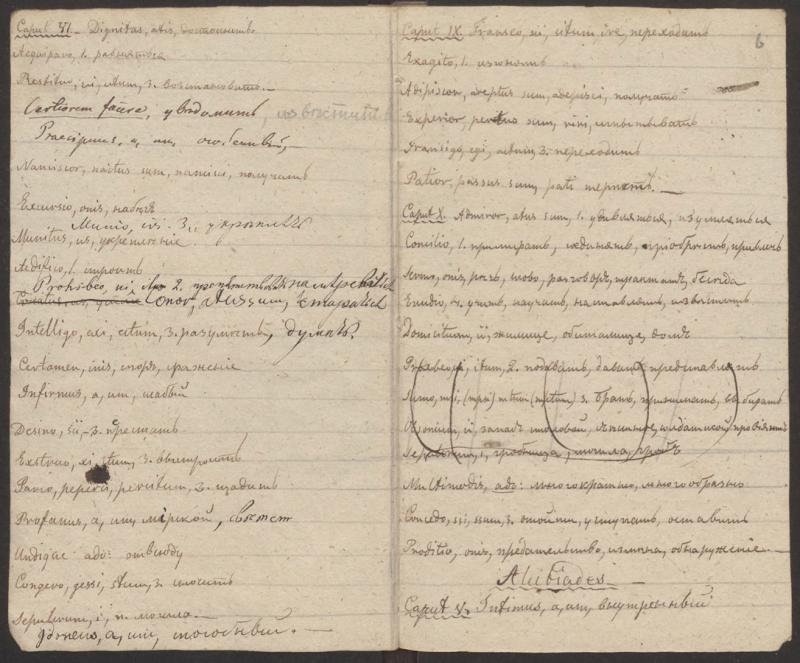 Caput VI. Dignitas, atis, достоинство
Aequiparo, 1. равняться
Restituo, ui, utum, 3. возстановить.—
Certiorem facere, увѣдомить, извѣстить
Praecipuus, a, um, особенный,—
Nanciscor, nactus sum, nancisci, получать
Excursio, onis, набѣгъ
Munio, ivi. 3.. укрѣплять
Munitus, us, укрепленіе
Aedifico, 1. строить
Prohibeo, ui, itum 2.
Conor, atus sum, стараться
Intelligo, exi, ctum, 3. разумѣть, думать.
Certamen, inis, споръ, сраженіе
Infirmus, a, um, слабый
Desino, ii—3. престать
Exstruo, xi, ctum, 3. выстроить
Parco, peperci, parcitum, 3. щадить
Profanus, a, um, мірской,
Undique adv: отвсюду
Congero, gessi, stum, 3. сносить
Sepulcrum, i, n. могила.—
Idoneus, a, um, способный.—
Caput IX. Transeo, ii, itum, ire, переходить
6
Exagito, 1. изгонять
Adipiscor, adeptus sum, adepisci, получать
Experior, pertus sum, riri, испытывать
Transigo, egi, actum, 3. переходить
Patior, passus sum, pati терпѣть.—
Caput X. Admiror, atus sum, 1. удивляться, изумляться
Concilio, 1. примирять, соединять, пріобрѣсть, привлечь
Sermo, onis, рѣчь, слово, разговоръ, трактатъ, бесѣда
Erudio, 4. учить, научать, наставлять, извѣстить
Domicilium, ii, жилище, обиталище, домъ
Praebeo, ui, itum, 2. подавать, давать, представлять
Sumo, msi, (mpsi) mtum (mptum) 3. брать, принимать, выбирать
Sepulcrum, i, гробница, могила, гробъ
Multimodis, adv: многократно, многообразно
Concedo, ssi, ssum, 3. отойти, уступать, оставить
Proditio, onis, предательство, измѣна, обнаруженіе.—
Alcibiades.—
Caput V. Intimus, a, um, внутренный